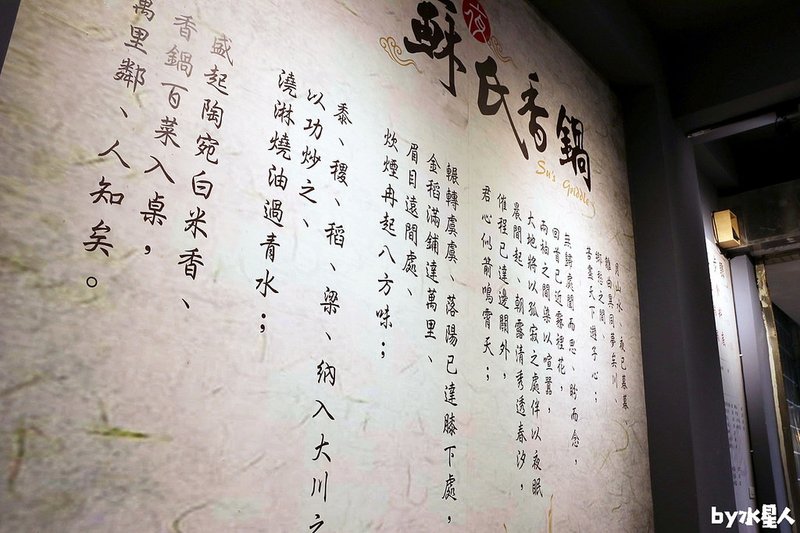 蘇氏香鍋
夜
Su's Griddle
見山水、夜已暮暮
雖曲異同夢矣川、
縣物之間、
若盡天下遊子心；
無歸處聞而思、盼而念，
回首已近霧裡花，
兩袖之間染以喧囂，
大地將以孤寂之處伴以夜眠
晨間起、朝露清秀透春汐，
催程已達邊關外，
君心似箭鳴霄天；
輾轉虞虞、落陽已達膝下處，
金稻滿鋪達萬里、
眉目遠間處、
炊煙冉起八方味；
黍、稷、稻、梁、納入大川之
以功炒之、
澆淋燒油過青水；
盛起陶宛白米香、
香鍋百菜入桌，
萬里鄰、人知矣。
by水星人